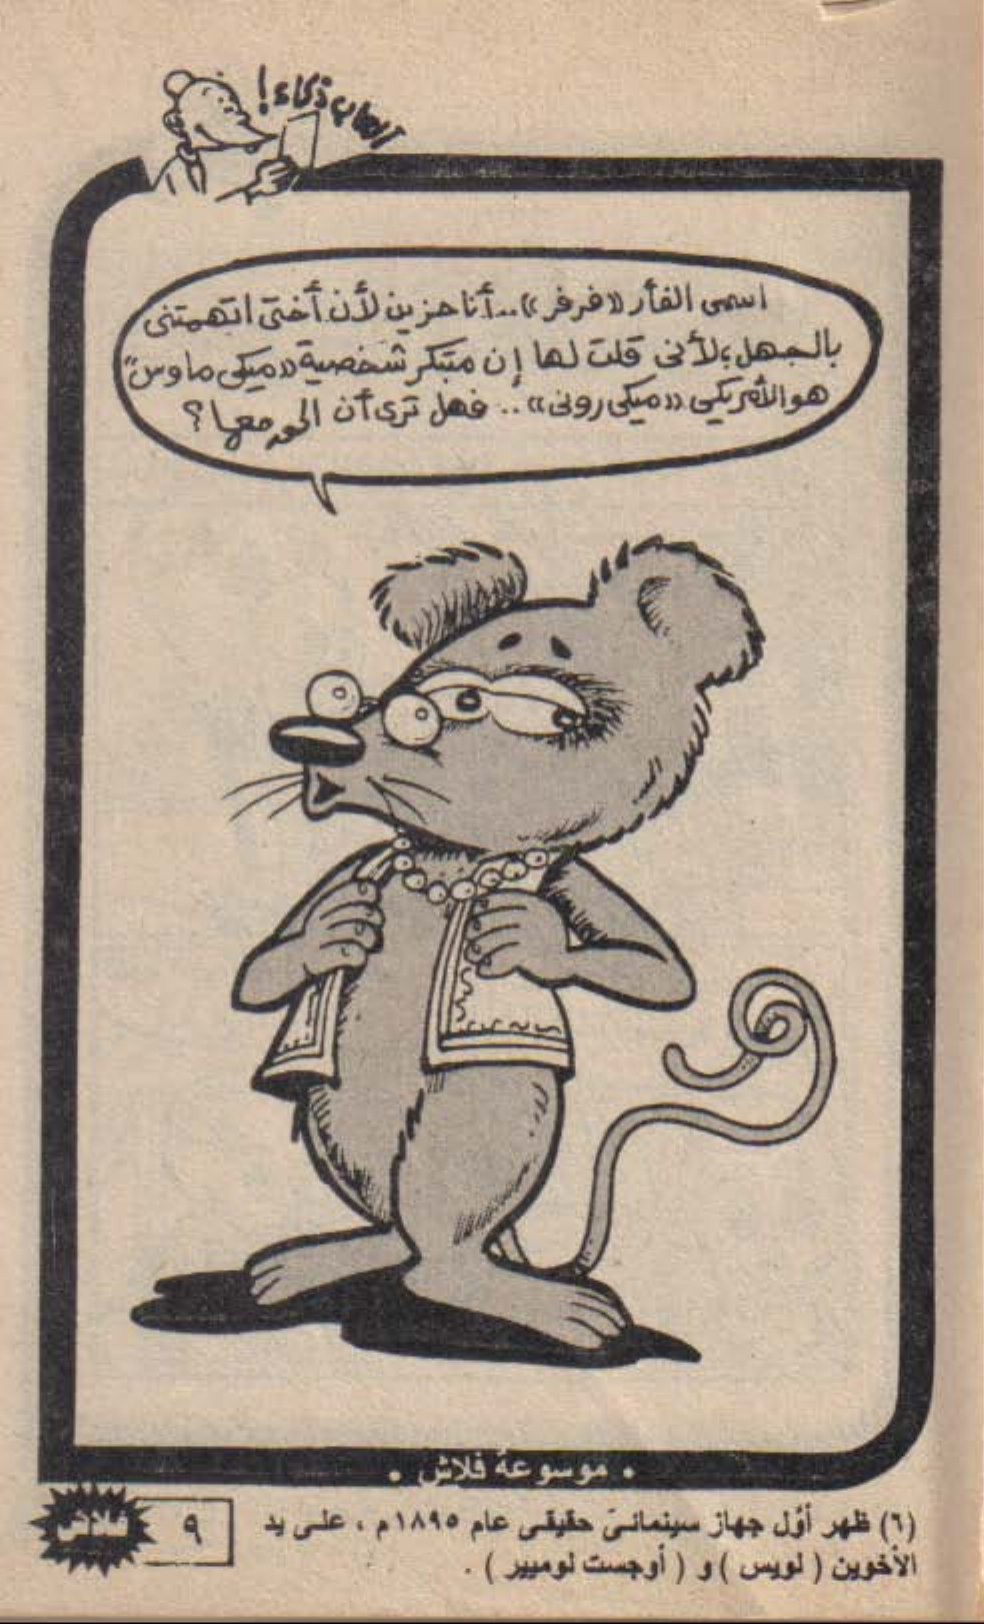 ألعاب ذكاء!
اسمى الفأر «فرفر»..أنا حزين لأن أختى اتهمتنى
بالجهل؛لأنى قلت لها إن مبتكر شخصية «ميكى ماوس»
هو الأمريكى «ميكى رونى».. فهل ترى أن الحق معها؟
• موسوعة فلاش •
(٦) ظهر أوَّل جهاز سينمائىّ حقيقى عام ١٨٩٥م ، على يد
الأخوين ( لويس ) و ( أوجست لوميير ) .
٩
فلاش